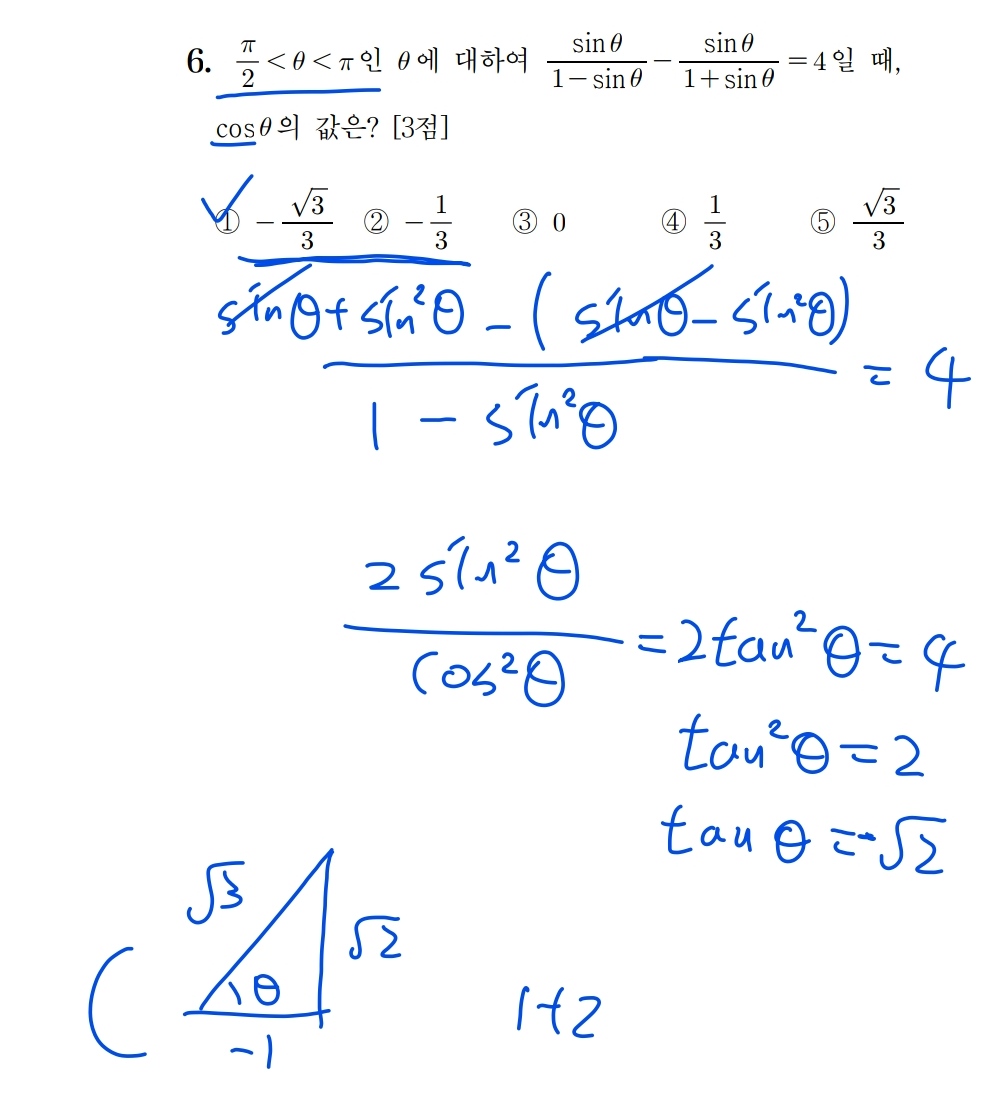 6. π/2 < θ < π인 θ에 대하여 sinθ/(1−sinθ) − sinθ/(1+sinθ) = 4일 때,
cosθ의 값은? [3점]
① −√3/3 ② −1/3 ③ 0 ④ 1/3 ⑤ √3/3
sinθ + sin²θ − (sinθ − sin²θ) / 1 − sin²θ = 4
2sin²θ / cos²θ = 2tan²θ = 4
tan²θ = 2
tanθ = -√2
√3
√2
θ
-1
1+2